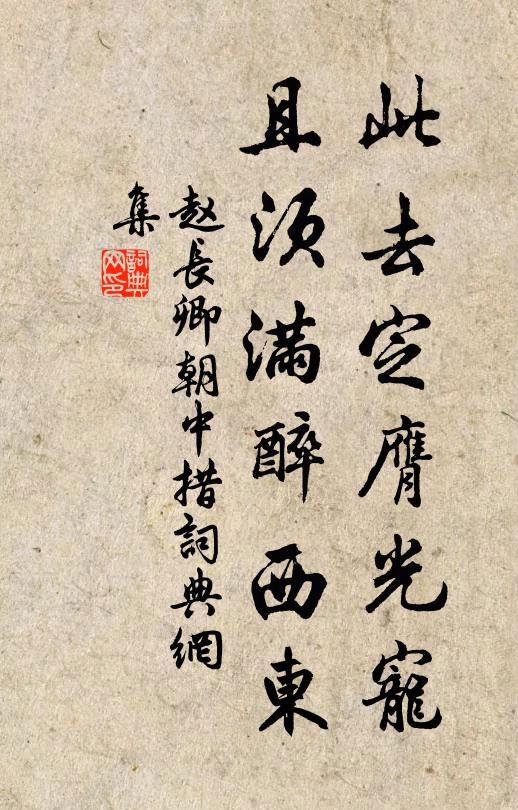 此去定膺光寵
且須滿醉西東
赵長卿朝中措詞典網
集
詞典
网印